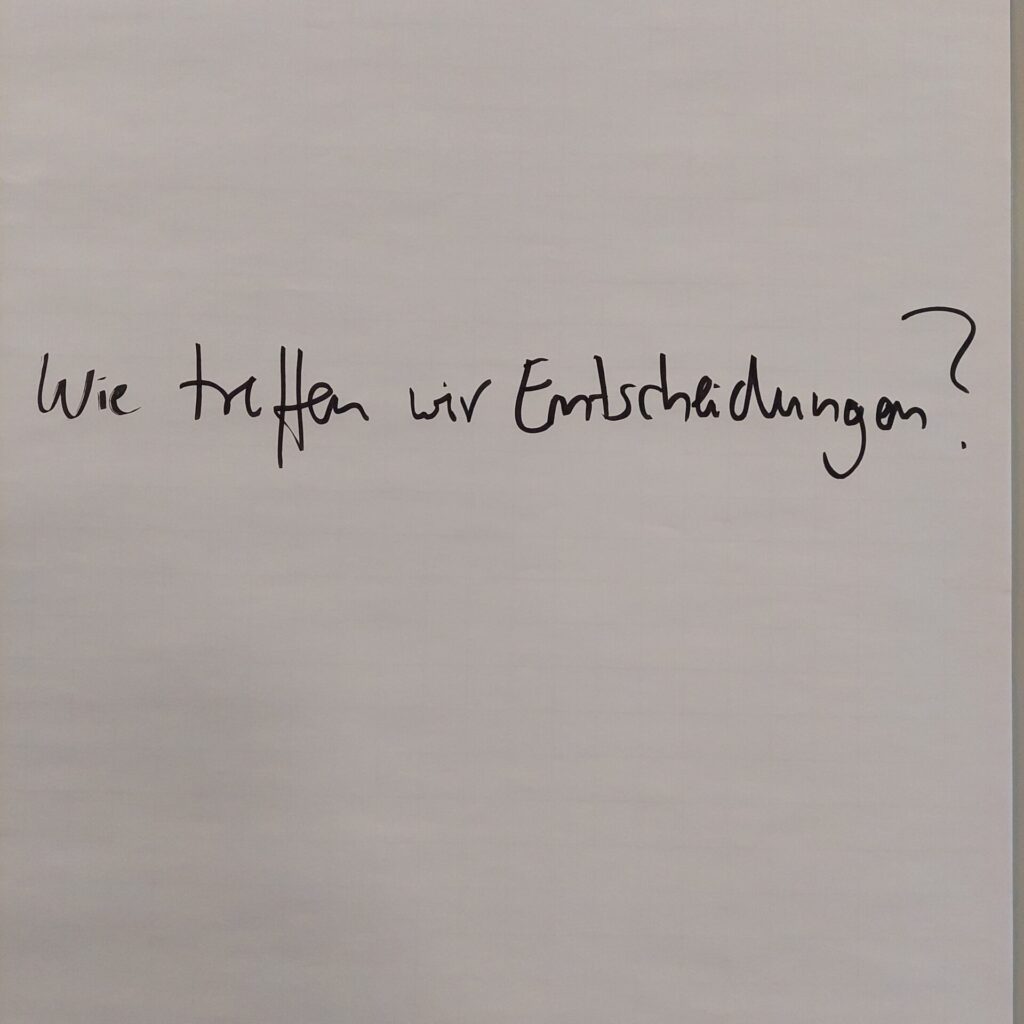 Wie treffen wir Entscheidungen?